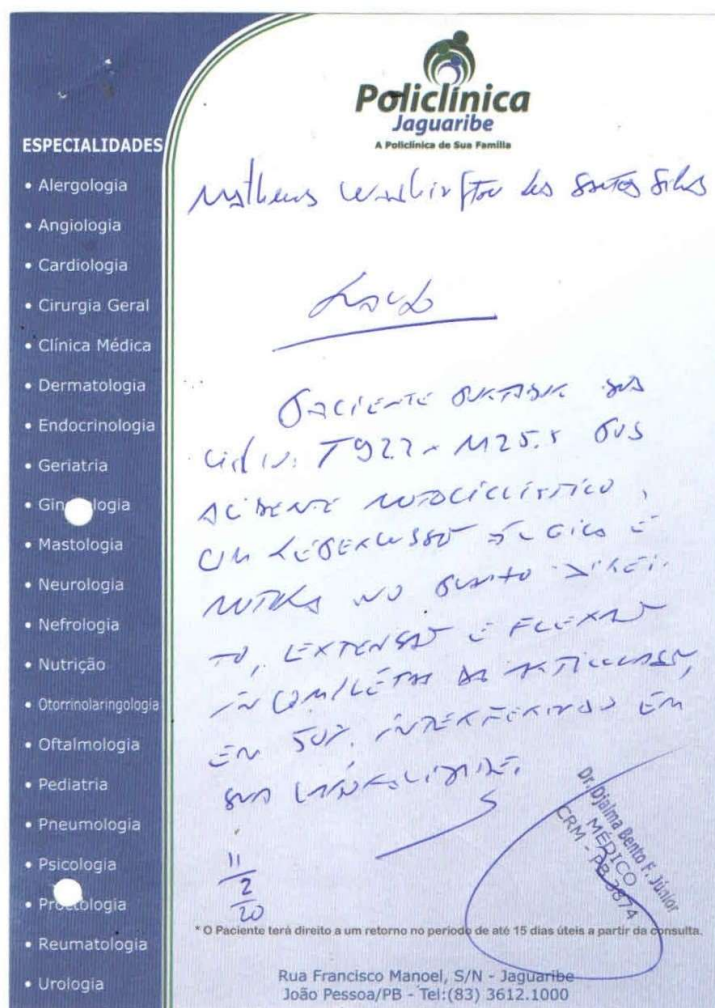 Policlínica
Jaguaribe
A Policlínica de Sua Família
ESPECIALIDADES
• Alergologia
• Angiologia
• Cardiologia
• Cirurgia Geral
• Clínica Médica
• Dermatologia
• Endocrinologia
• Geriatria
• Gin logia
• Mastologia
• Neurologia
• Nefrologia
• Nutrição
• Otorrinolaringologia
• Oftalmologia
• Pediatria
• Pneumologia
• Psicologia
• Pro tologia
• Reumatologia
• Urologia
Matheus Washington dos Santos Silva
Laudo
Paciente
T92.2 M25.5 pós
acidente motociclístico,
com repercussão álgica e
motora no punho direi-
to, extensão e flexão
incompleta da articulação,
em 50%, interferindo em
sua
11
2
20
Dr. Djalma Bento F. Júnior
MÉDICO
CRM - PB 3874
* O Paciente terá direito a um retorno no período de até 15 dias úteis a partir da consulta.
Rua Francisco Manoel, S/N - Jaguaribe
João Pessoa/PB - Tel:(83) 3612.1000